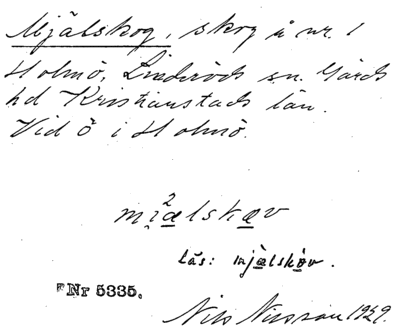 Mjälskog, skog å nr. 1
Holmö, Linderöds sn. Gärds
hd Kristianstads län.
Vid Ö i Holmö.
2
mi̯ælskæv
läs: mjàlskòv.
Nr 5335.
Nils Nilsson 1929.